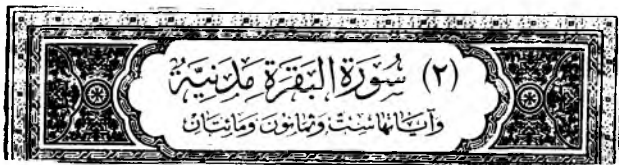 (٢) سُورَةُ البَقَرَةِ مَدَنِيَّةٌ
وَآيَاتُهَا سِتٌّ وَثَمَانُونَ وَمِائَتَانِ